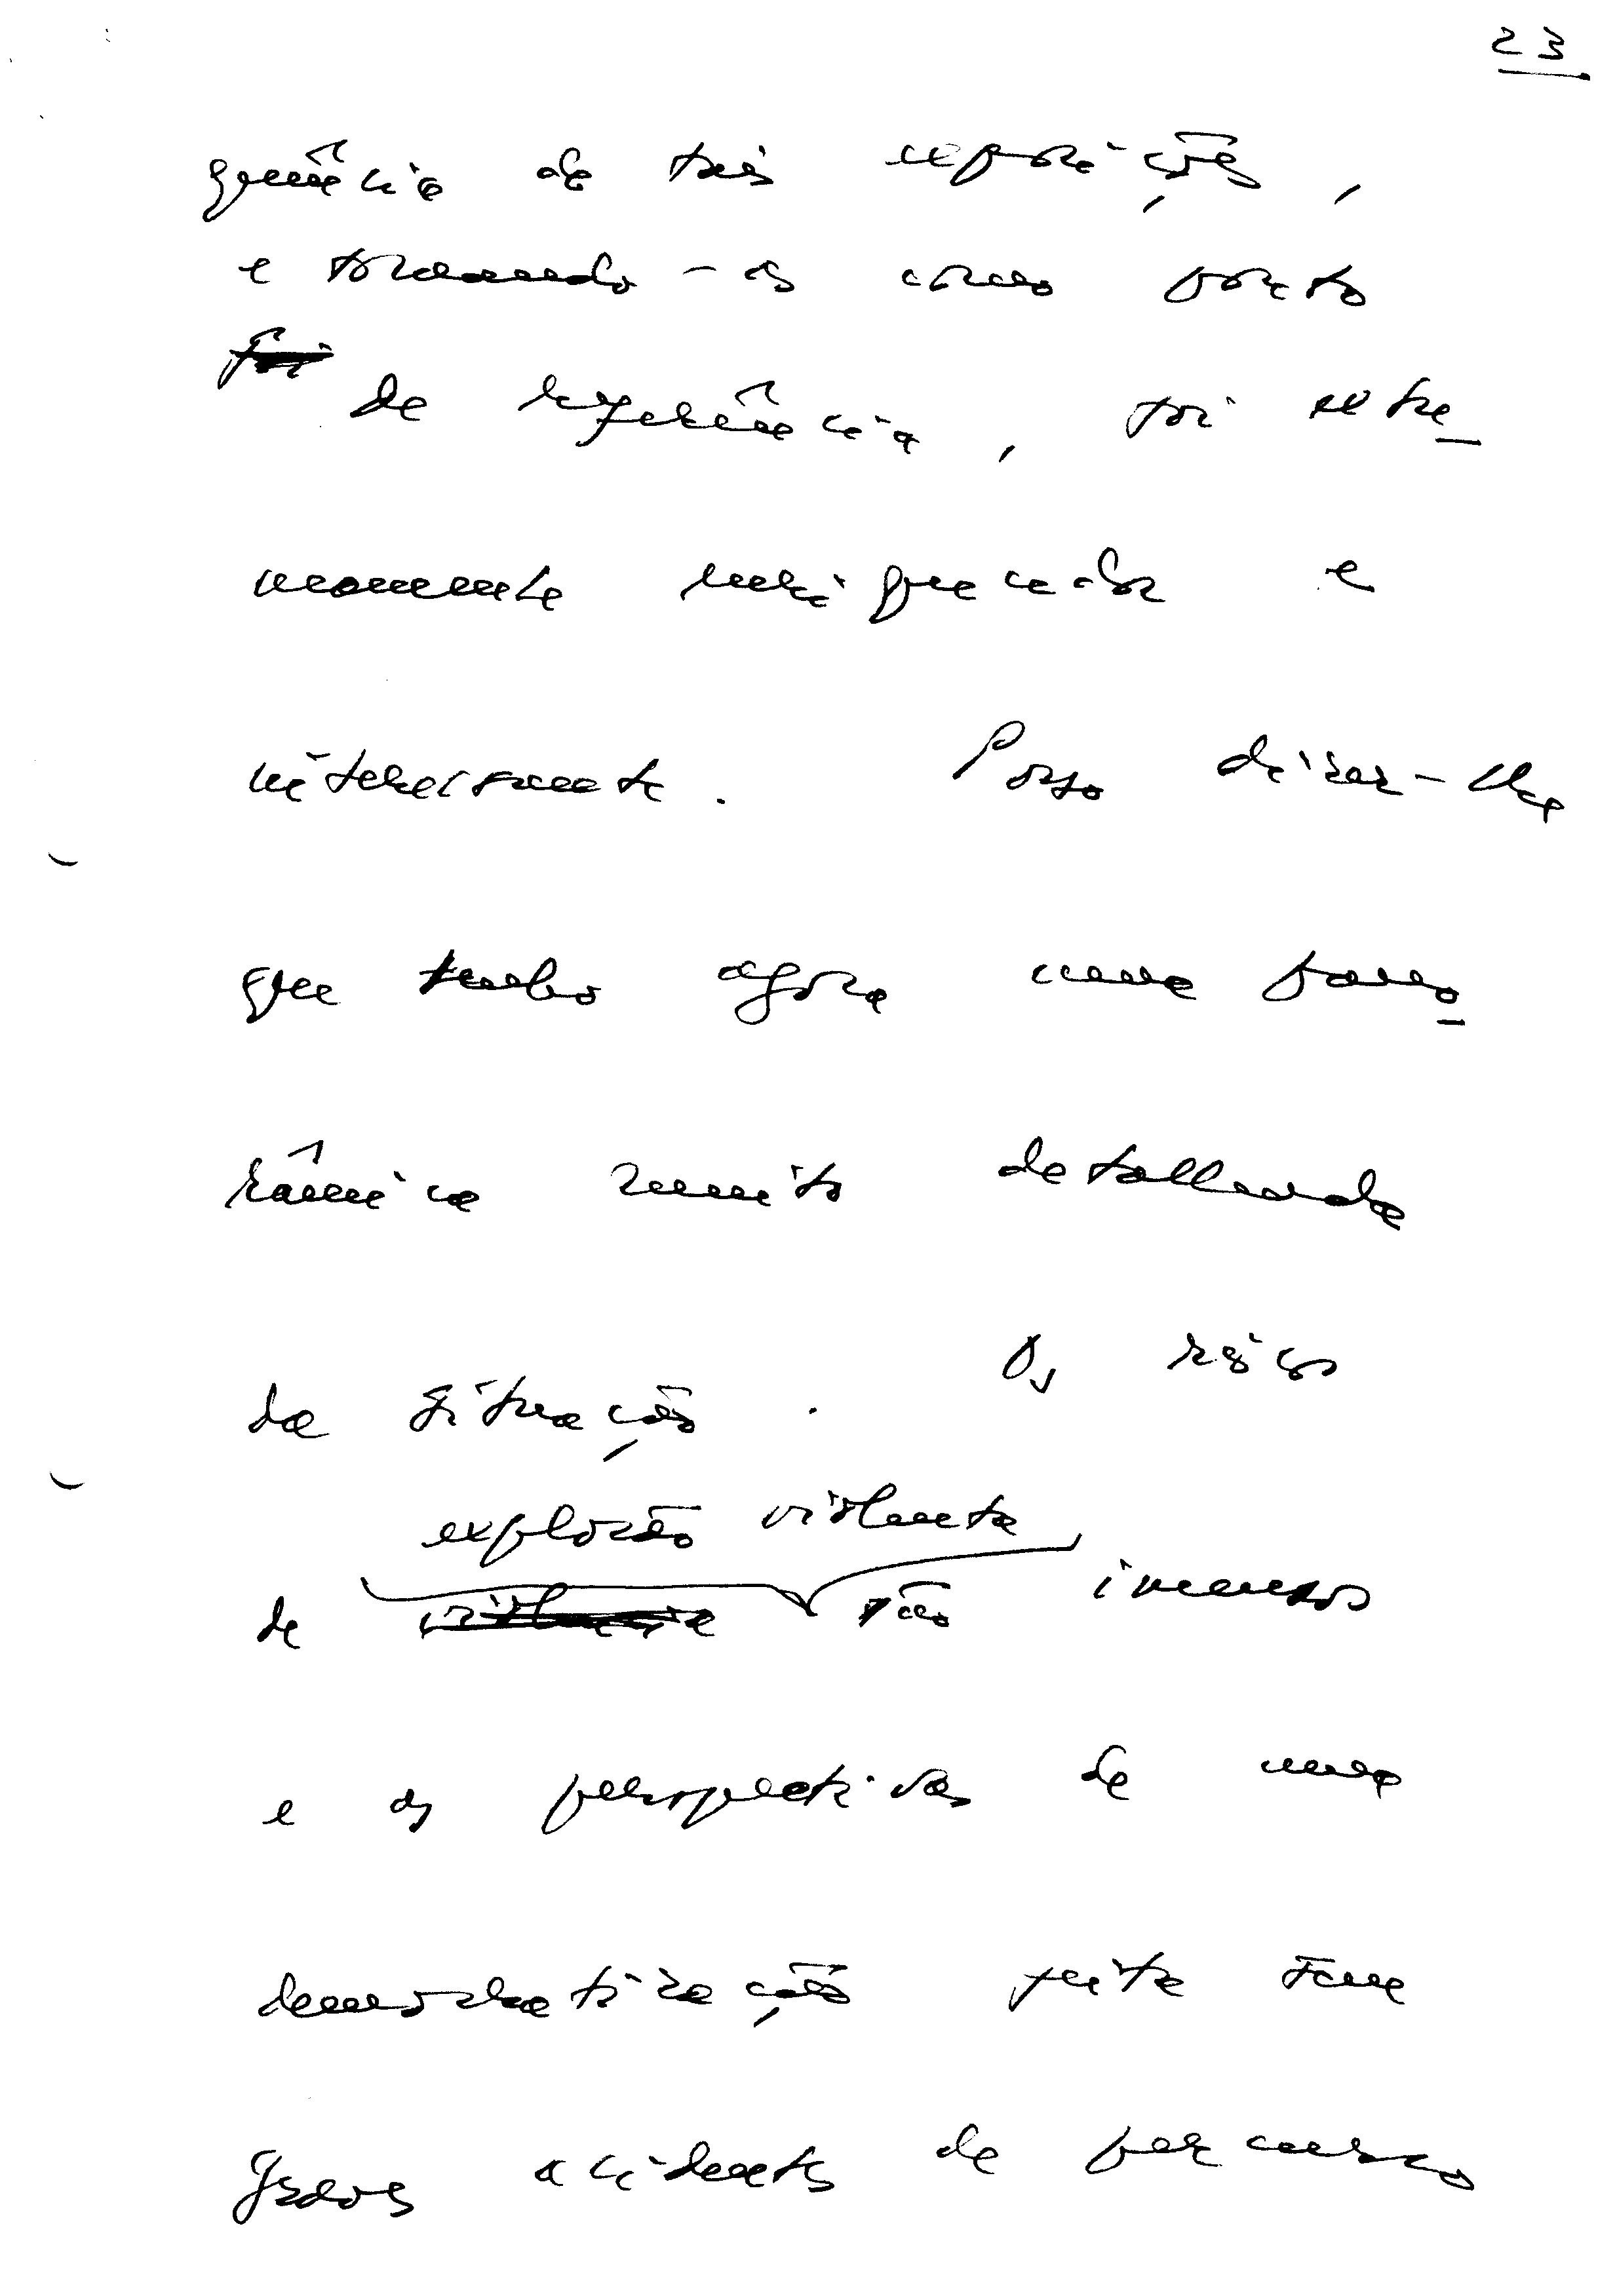 23
qüência de três exposições,
e tomando-as como ponto
foi
de referência, foi extre-
mamente enriquecedor e
interessante. Posso dizer-lhe
que tenho agora uma pano-
râmica muito detalhada
da situação. Os riscos
explosão violenta
de violência são imensos
e as perspectivas de uma
democratização feita sem
graves acidentes de percurso